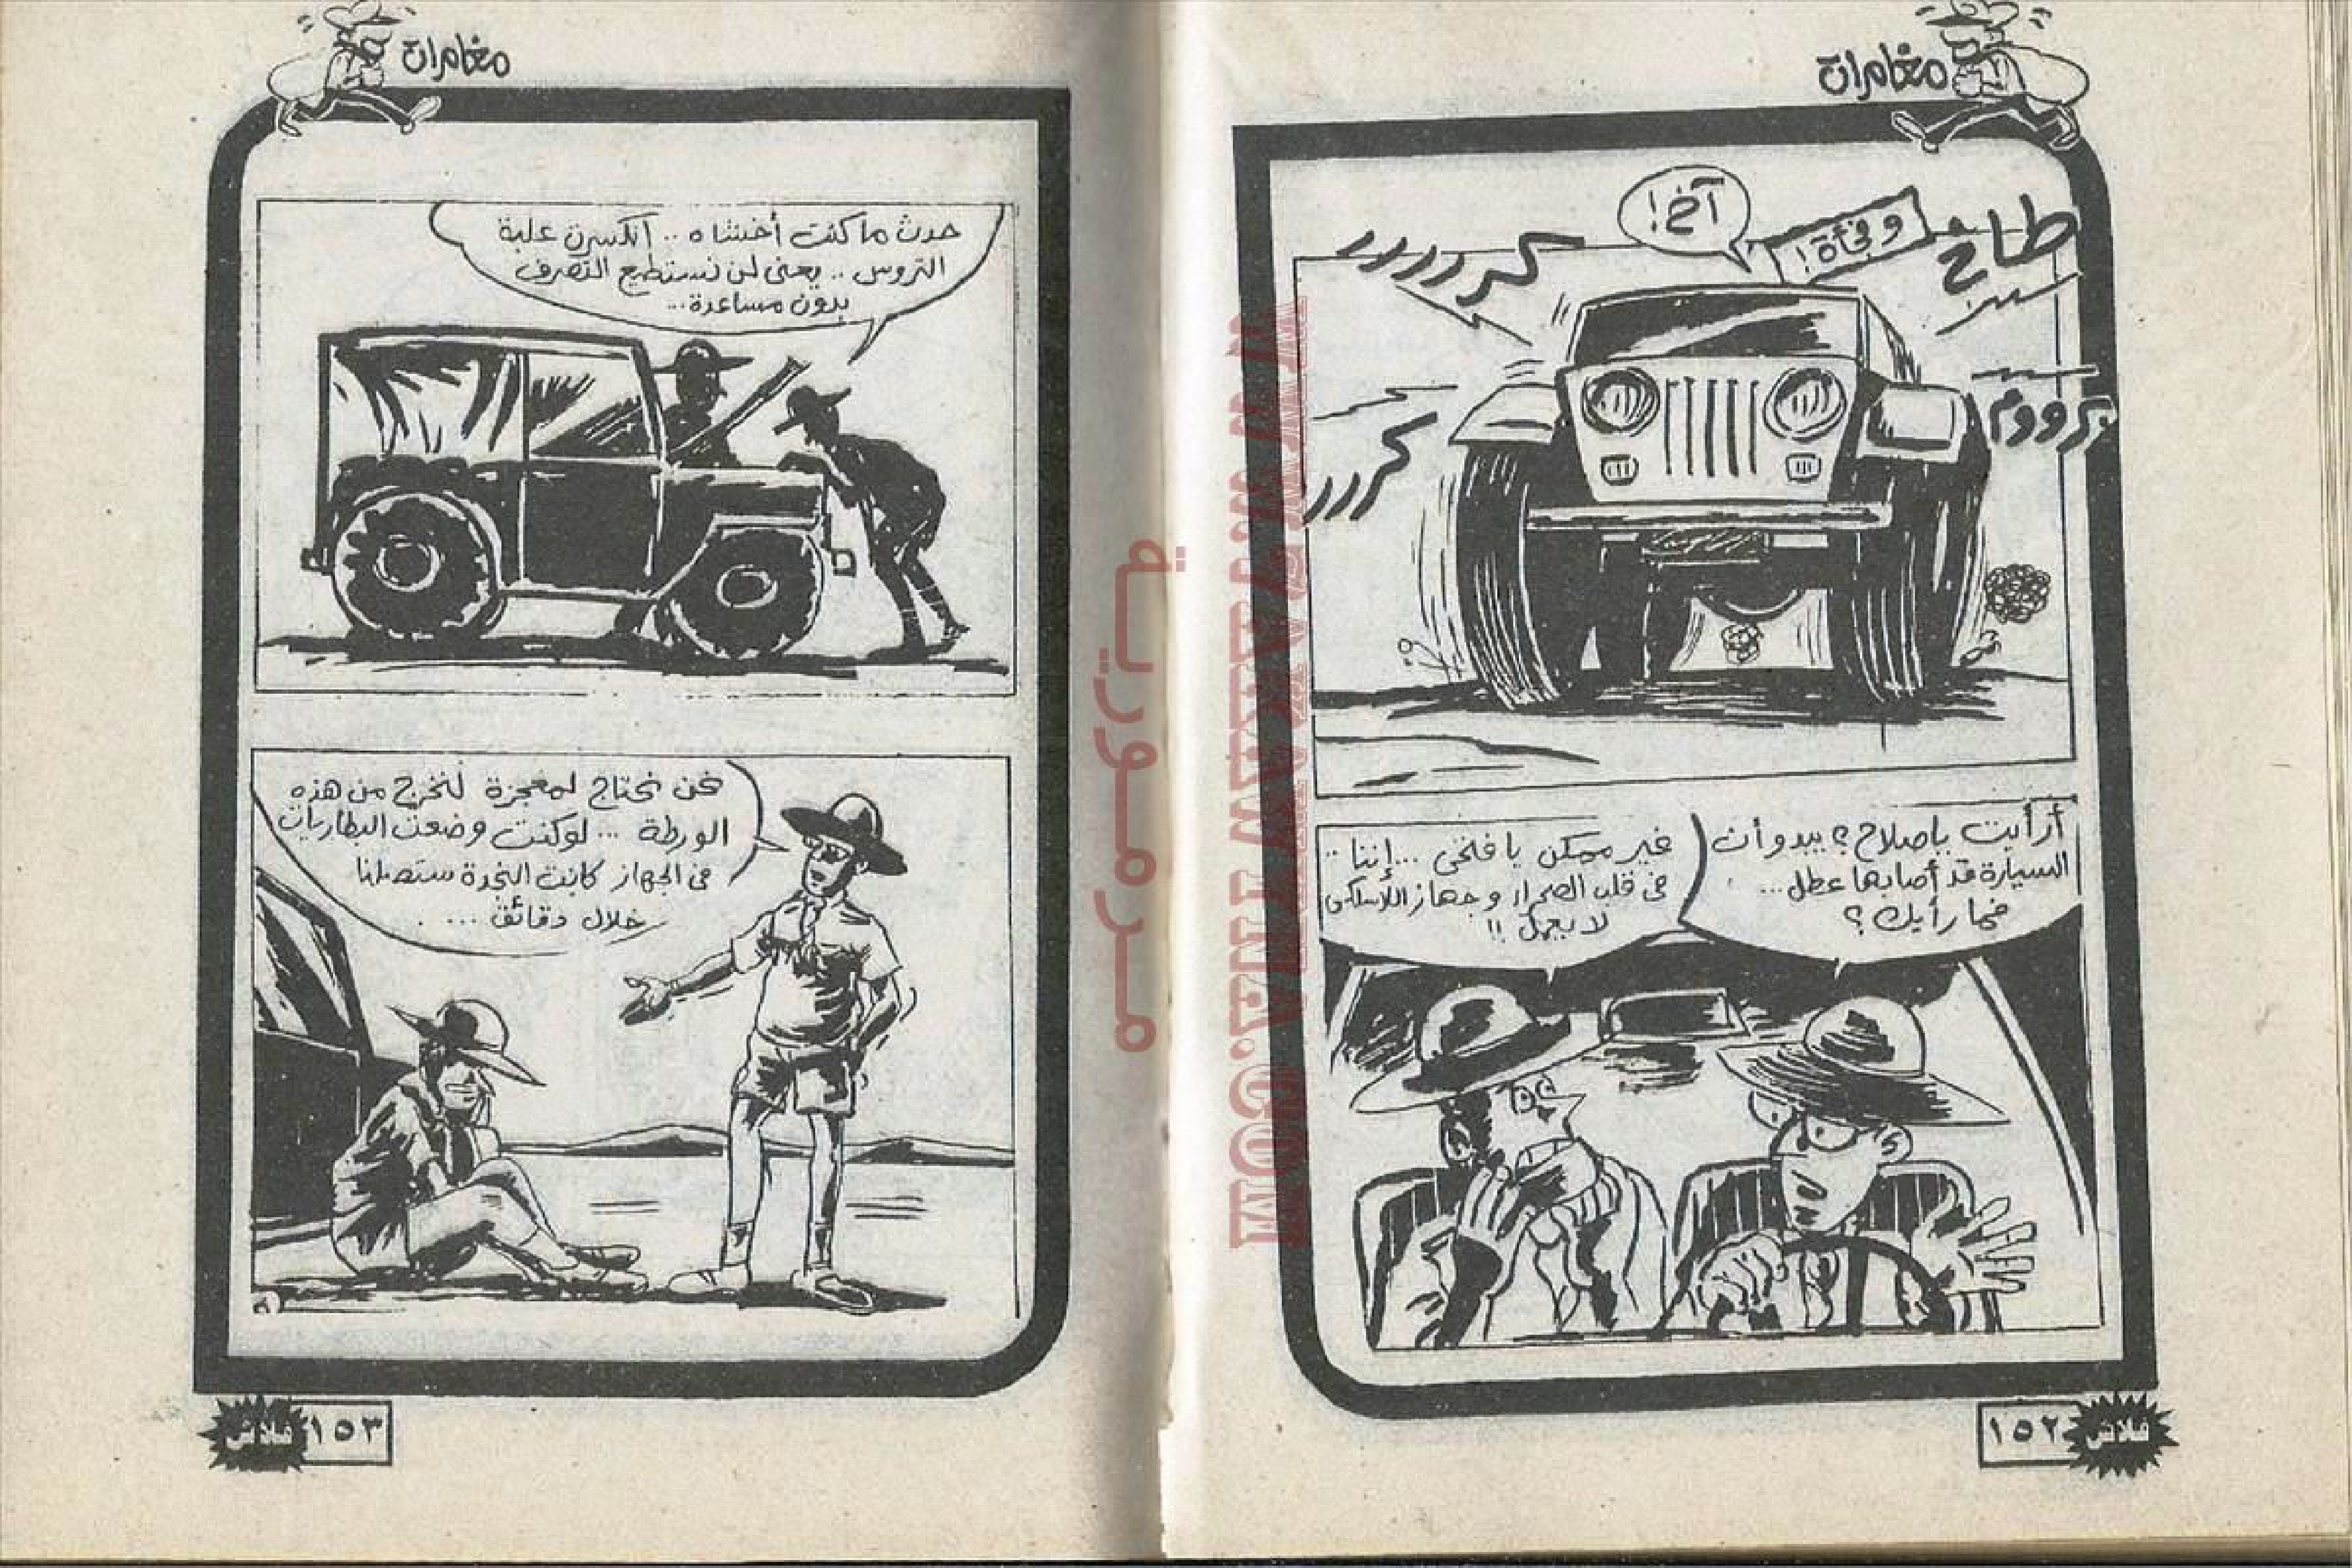 مغامرات
طاخ
وفجأة!
آخ!
كررررر
برووم
كررر
أرأيت ياصلاح؟ يبدو أن
السيارة قد أصابها عطل...
فما رأيك؟
غير ممكن يا فتحى... إننا
فى قلب الصحراء وجهاز اللاسلكى
لا يعمل!!
١٥٢
فلاش
مغامرات
حدث ما كنت أخشاه.. انكسرت علبة
التروس.. يعنى لن نستطيع التصرف
بدون مساعدة...
نحن نحتاج لمعجزة لنخرج من هذه
الورطة... لو كنت وضعت البطاريات
فى الجهاز كانت النجدة ستصلنا
خلال دقائق...
١٥٣
فلاش
مرمورية